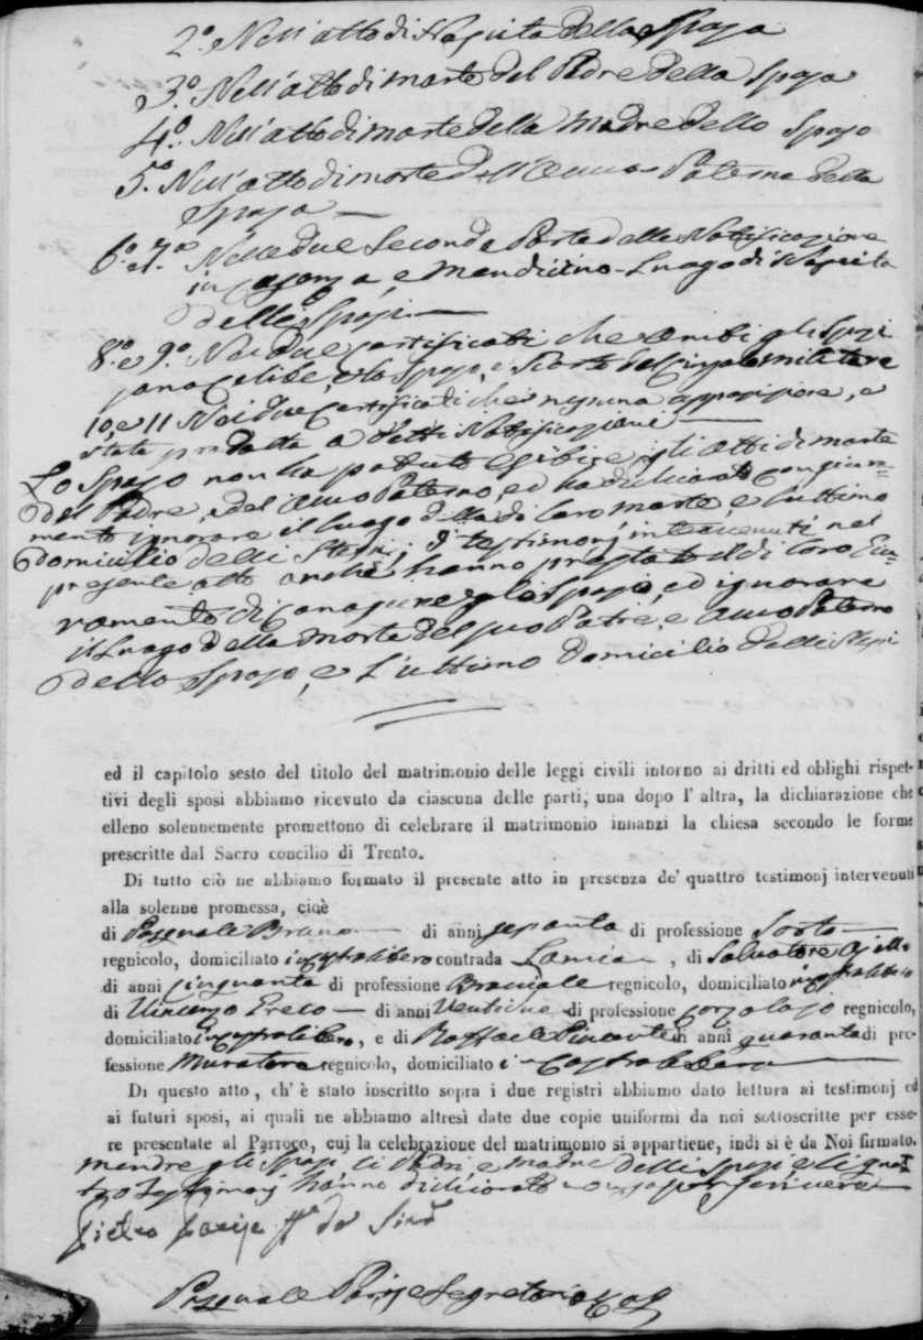 2.° Nell'atto di Nascita della Sposa
3.° Nell'atto di morte del Padre della Sposa
4.° Nell'atto di morte della Madre dello Sposo
5.° Nell'atto di morte dell'Avo Paterno della
Sposa
6.° e 7.° Nelle due Seconda Parte delle Notificazione
in Cosenza, e Mendicino Luogo di Nascita
delli Sposi
8.° e 9.° Nei due certificati che ambi gli Sposi
sono celibe, e lo Sposo, e sciolto dal Cingolo militare
10, e 11 Nei due certificati che nessuna opposizione, e
stata prodotta a detti Notificazioni
Lo Sposo non ha potuto esibire gli atti di morte
del Padre, e del Avo Paterno, ed ha dichiarato con giura-
mento ignorare il luogo della di loro morte, e l'ultimo
domicilio delli Stessi; i testimonj intervenuti nel
presente atto anche hanno prestato il di loro Giu-
ramento di conoscere gli Sposi, ed ignorare
il Luogo della morte del suo Patre, e Avo Paterno
dello Sposo, e L'ultimo domicilio delli Stessi
ed il capitolo sesto del titolo del matrimonio delle leggi civili intorno ai dritti ed oblighi rispet-
tivi degli sposi abbiamo ricevuto da ciascuna delle parti, una dopo l' altra, la dichiarazione che
elleno solennemente promettono di celebrare il matrimonio innanzi la chiesa secondo le forme
prescritte dal Sacro concilio di Trento.
Di tutto ciò ne abbiamo formato il presente atto in presenza de' quattro testimonj intervenuti
alla solenne promessa, cioè
di Pasquale Bruno di anni sessanta di professione Sarto
regnicolo, domiciliato in Castrolibero contrada Lamia, di Salvatore
di anni cinquanta di professione Bracciale regnicolo, domiciliato in Castrolibero
di Vincenzo Greco di anni Ventinue di professione regnicolo,
domiciliato in Castrolibero, e di Raffaele di anni quaranta di pro-
fessione Muratore regnicolo, domiciliato in Castrolibero
Di questo atto, ch' è stato inscritto sopra i due registri abbiamo dato lettura ai testimonj ed
ai futuri sposi, ai quali ne abbiamo altresì date due copie uniformi da noi sottoscritte per esse-
re presentate al Parroco, cui la celebrazione del matrimonio si appartiene, indi si è da Noi firmato.
mendre gli Sposi, li Padri e madre delli Sposi e li quat-
tro testimonj hanno dichiarato non saper scrivere
Pietro Parise
Pasquale Parise Segretario